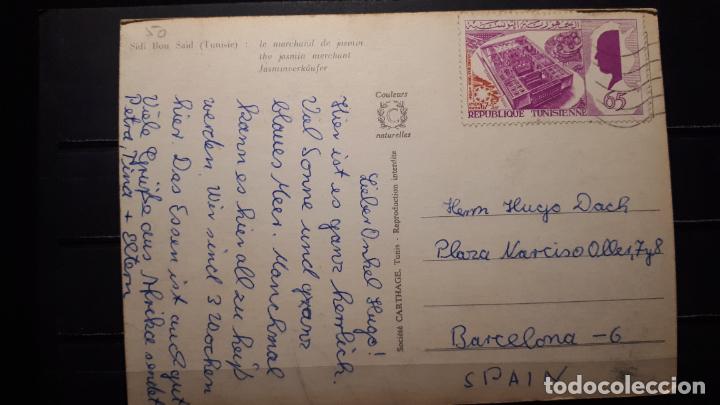 50
Sidi Bou Said (Tunisie) : le marchand de jasmin
the jasmin merchant
Jasminverkäufer
Couleurs
C
naturelles
Société CARTHAGE, Tunis - Reproduction interdite
Lieber Onkel Hugo!
Hier ist es ganz herrlich.
Viel Sonne und ganz
blaues Meer. Manchmal
kann es hier all zu heiß
werden. Wir sind 3 Wochen
hier. Das Essen ist auch gut
Viele Grüße aus Afrika sendet
Petra, Nina + Eltern
REPUBLIQUE TUNISIENNE
65
Herrn Hugo Dach
Plaza Narciso Oller, 7y8
Barcelona -6
SPAIN
todocoleccion.net